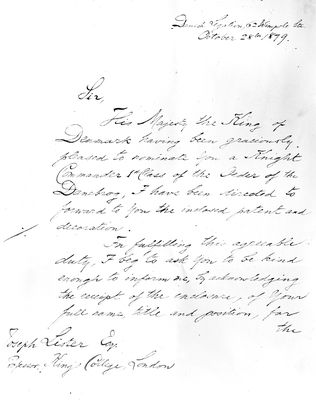 Danish Legation, 62 Wimpole Str.
October 28th 1879.
Sir,
His Majesty the King of
Denmark having been graciously
pleased to nominate you a Knight
Commander 1st Class of the Order of the
Danebrog, I have been directed to
forward to you the inclosed patent and
decoration.
In fulfilling this agreeable
duty, I beg to ask you to be kind
enough to inform me, by acknowledging
the receipt of the enclosure, of Your
full name, title and position, for
the
Joseph Lister Esq.
King College, London